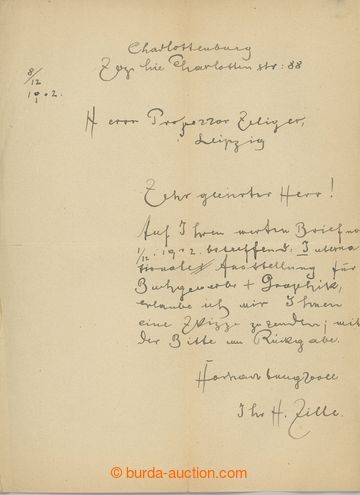 Charlottenburg
Sophie Charlotten str: 88
8/12 1902.
Herrn Professor Seliger,
Leipzig
Sehr geehrter Herr!
Auf Ihren werten Brief
1/12. 1902. betreffend: Interna
tionale Ausstellung für
Buchgewerbe + Graphik,
erlaube ich mir Ihnen
eine Skizze zu senden; mit
der Bitte um Rückgabe.
Hochachtungsvoll
Ihr H. Zille.
© burda-auction.com